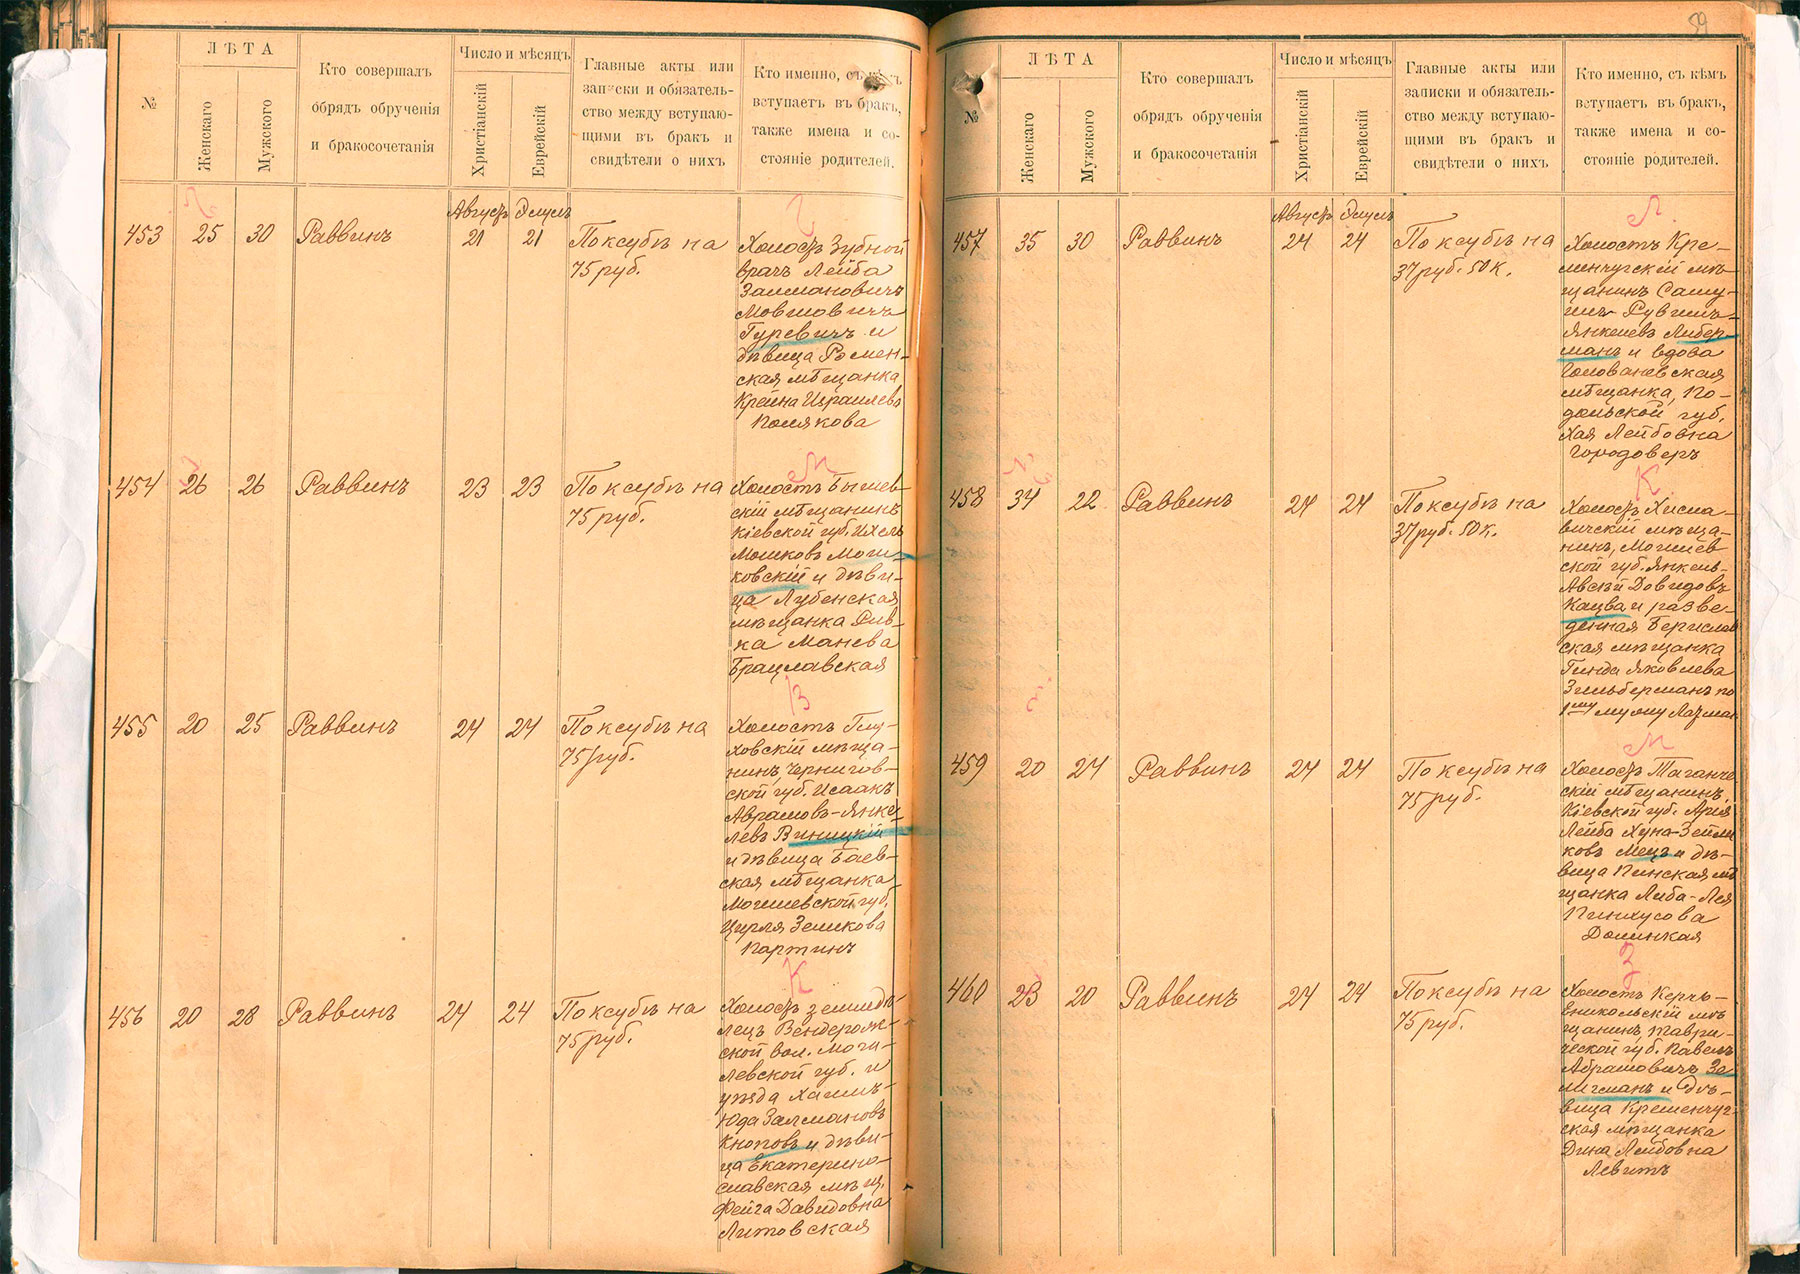 №
ЛѢТА
Женскаго
Мужского
Кто совершалъ
обрядъ обрученія
и бракосочетанія
Число и мѣсяцъ
Христіанскій
Еврейскій
Главные акты или
записки и обязатель-
ство между вступаю-
щими въ бракъ и
свидѣтели о нихъ
Кто именно, съ кѣмъ
вступаетъ въ бракъ,
также имена и со-
стояніе родителей.
453 25 30 Раввинъ
Августъ Элулъ
21 21
По ксубѣ на
75 руб.
Г
Холостъ Зубной
врачъ Лейба
Залмановичъ
Мовшовичъ
Гуревичъ и
дѣвица Ромен-
ская мѣщанка
Крейна Израилева
Полякова
454 26 26 Раввинъ 23 23
По ксубѣ на
75 руб.
М
Холостъ Бышев-
скій мѣщанинъ
Кіевской губ. Ихель
Мошковъ Моги-
ковскій и дѣви-
ца Лубенская
мѣщанка Рив-
ка Манева
Брацлавская
455 20 25 Раввинъ 24 24
По ксубѣ на
75 руб.
В
Холостъ Глу-
ховскій мѣща-
нинъ, Чернигов-
ской губ. Исаакъ
Абрамовъ-Янке-
левъ Виницкій
и дѣвица Баев-
ская мѣщанка
Могилевской губ.
Цирля Зеликова
Партинъ
456 20 28 Раввинъ 24 24
По ксубѣ на
75 руб.
К
Холостъ земледѣ-
лецъ Вендорож-
ской вол. Моги-
левской губ. и
уѣзда Хаимъ-
Юда Залмановъ
Кноповъ и дѣви-
ца Екатерино-
славская мѣщ.
Фейга Давидовна
Литовская
59
№
ЛѢТА
Женскаго
Мужского
Кто совершалъ
обрядъ обрученія
и бракосочетанія
Число и мѣсяцъ
Христіанскій
Еврейскій
Главные акты или
записки и обязатель-
ство между вступаю-
щими въ бракъ и
свидѣтели о нихъ
Кто именно, съ кѣмъ
вступаетъ въ бракъ,
также имена и со-
стояніе родителей.
457 35 30 Раввинъ
Августъ Элулъ
24 24
По ксубѣ на
37 руб. 50 к.
Л
Холостъ Кре-
менчугскій мѣ-
щанинъ Саму-
илъ Рувимъ-
Янкелевъ Либер-
манъ и вдова
Голованевская
мѣщанка, По-
дольской губ.
Хая Лейбовна
Городоверъ
458 34 22 Раввинъ 24 24
По ксубѣ на
37 руб. 50 к.
К
Холостъ Хисла-
вичскій мѣща-
нинъ, Могилев
ской губ. Янкель-
Авсѣй Довидовъ
Кацва и разве-
денная Берислав
ская мѣщанка
Гинда Яковлева
Зильберманъ по
1му мужу Лазман
459 20 24 Раввинъ 24 24
По ксубѣ на
75 руб.
М
Холостъ Таганче
скій мѣщанинъ,
Кіевской губ. Арія
Лейба Хуна-Зейли
ковъ Мецъ и дѣ-
вица Пинская мѣ
щанка Либа-Лея
Пинхусова
Долинкая
460 23 20 Раввинъ 24 24
По ксубѣ на
75 руб.
З
Холостъ Керчь-
Еникольскій мѣ
щанинъ Таври-
ческой губ. Павелъ
Абрамовичъ За
лигманъ и дѣ-
вица Кременчуг-
ская мѣщанка
Дина Лейбовна
Левитъ